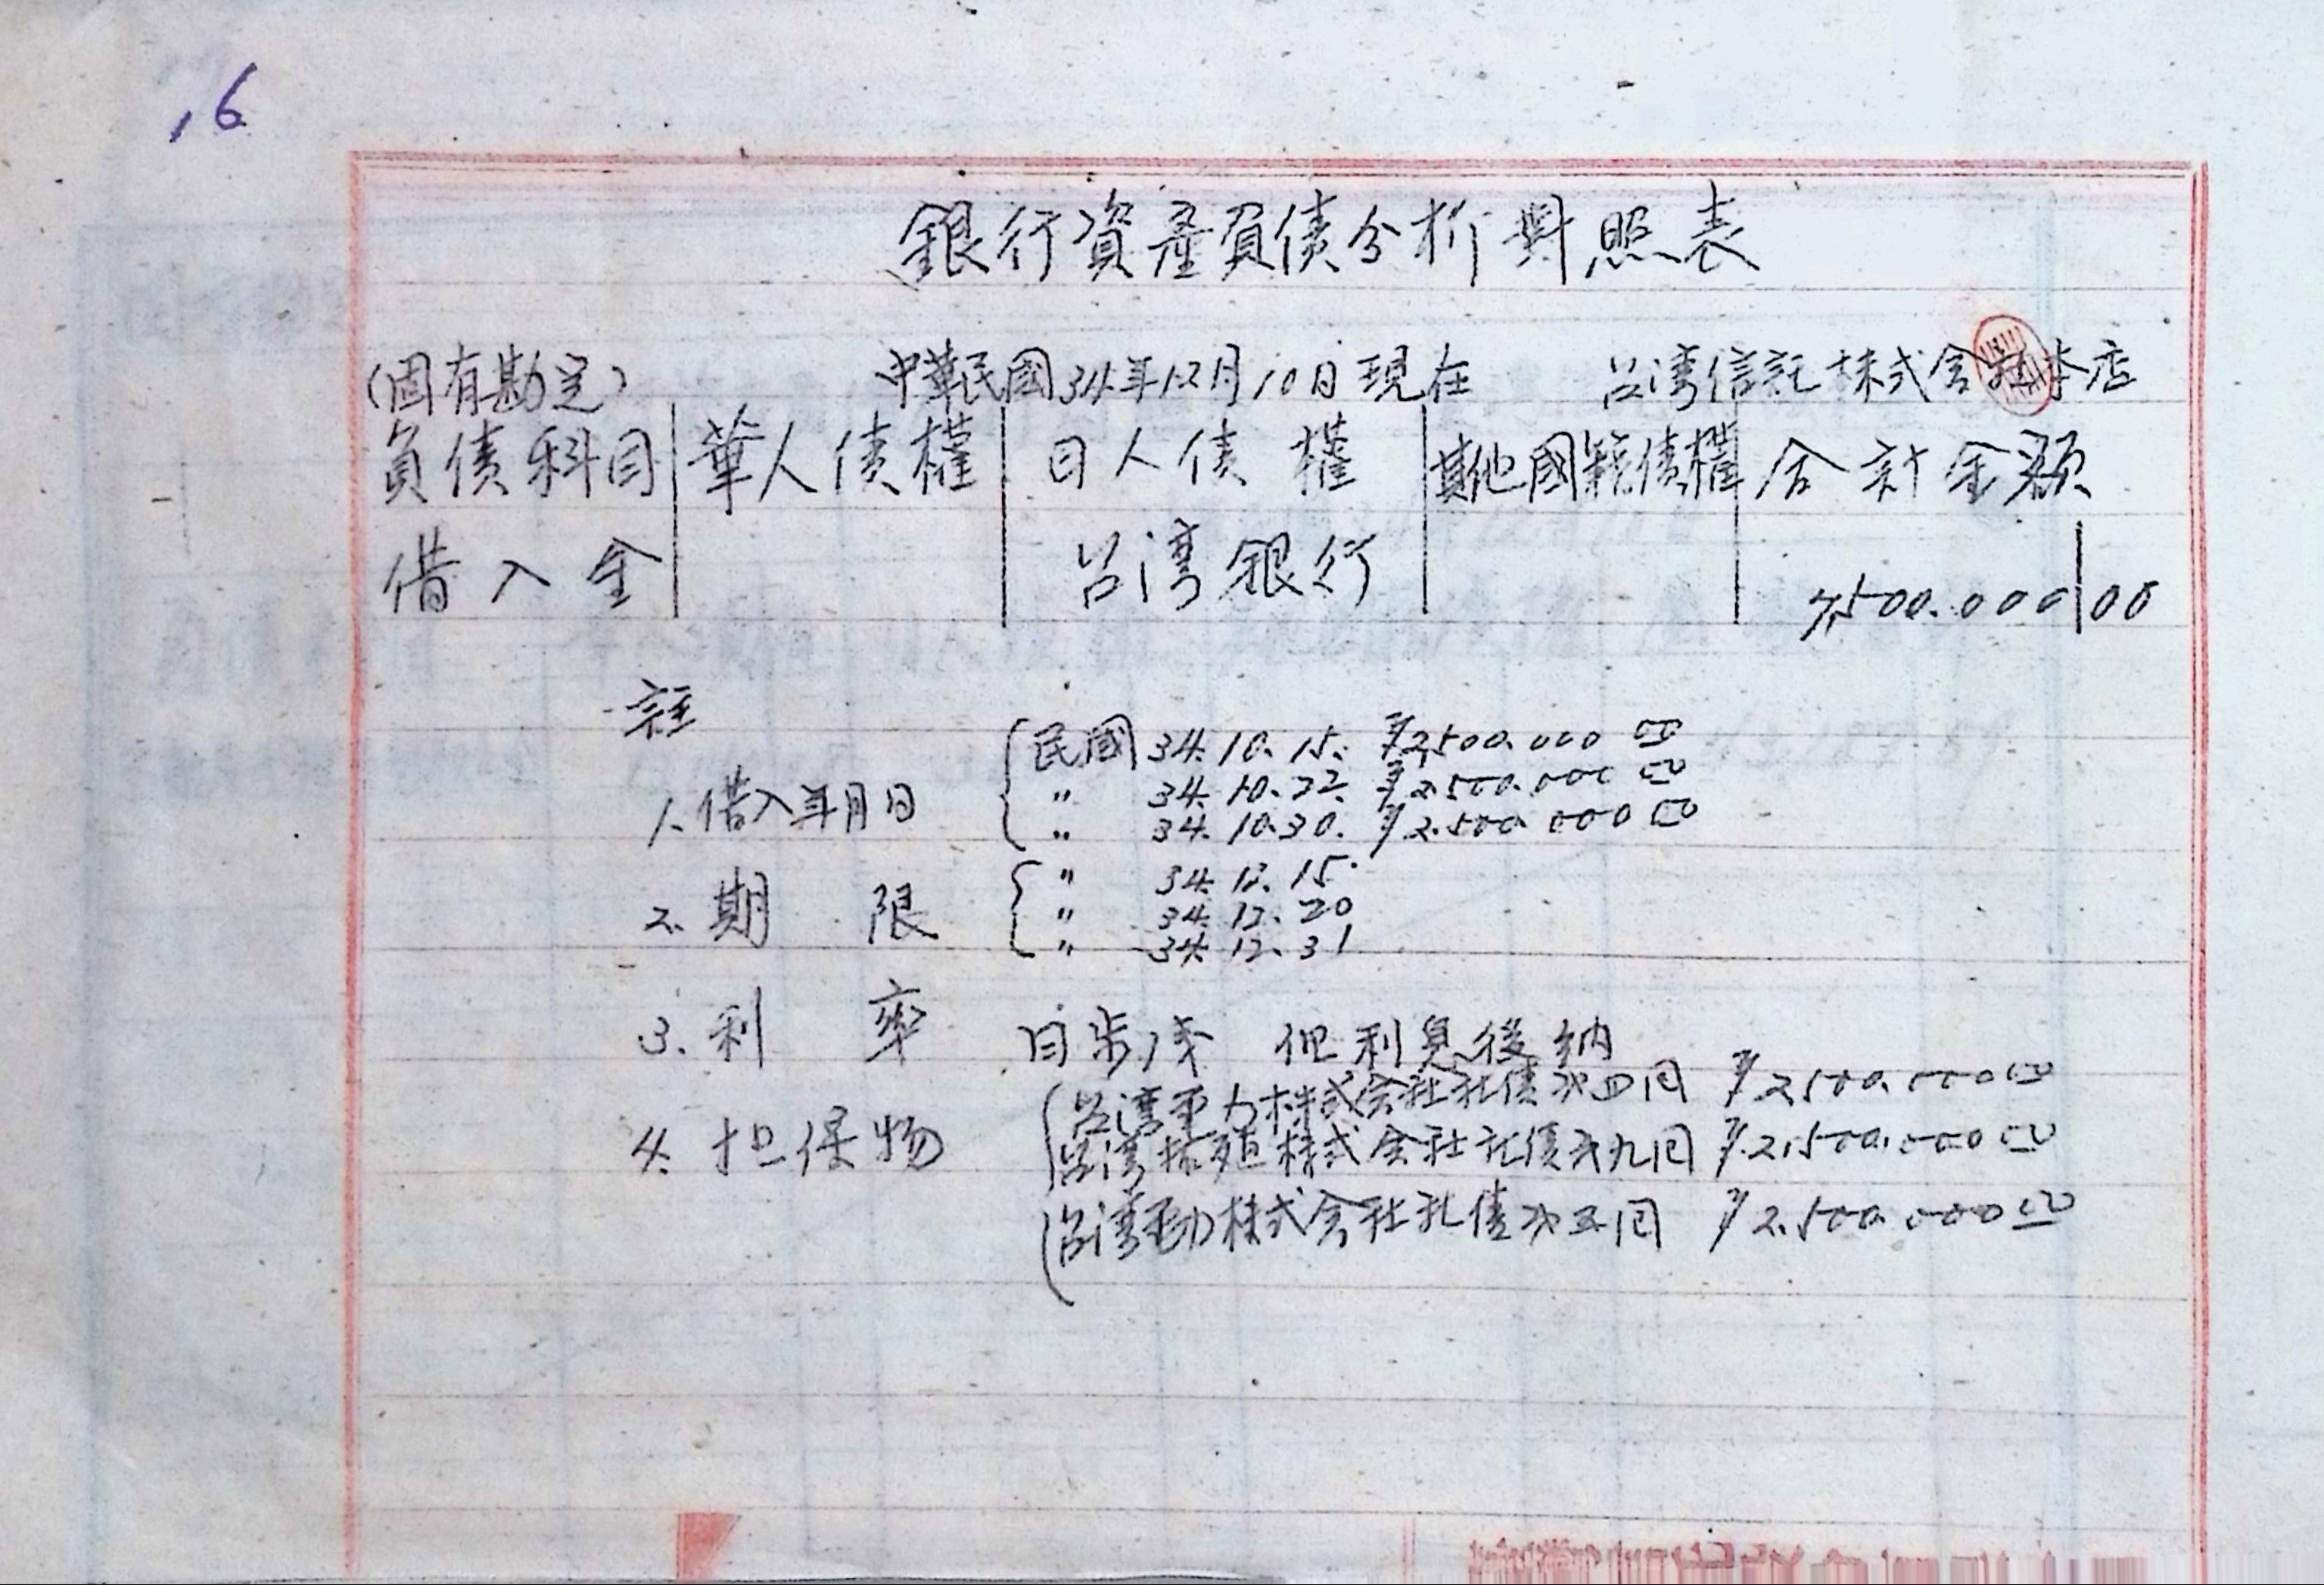 16
銀行資產負債分析對照表
(固有勘定) 中華民國34年12月10日現在 台湾信託株式会社本店
負債科目 華人債權 日人債權 其他國籍債權 合計金額
借入金 台湾銀行 7,500.000 00
註
1. 借入年月日 民國 34. 10. 15. ¥2,500.000 00
〃 34. 10. 22. ¥2.500.000 00
〃 34. 10. 30. ¥2.500.000 00
2. 期限 〃 34. 12. 15.
〃 34. 12. 20
〃 34. 12. 31
3. 利率 日歩 但利息後納
4. 担保物 台湾電力株式会社社債才四回 ¥2.500.000 00
台湾拓殖株式会社社債才九回 ¥2,500.000 00
台湾電力株式会社社債才五回 ¥2.500.000 00